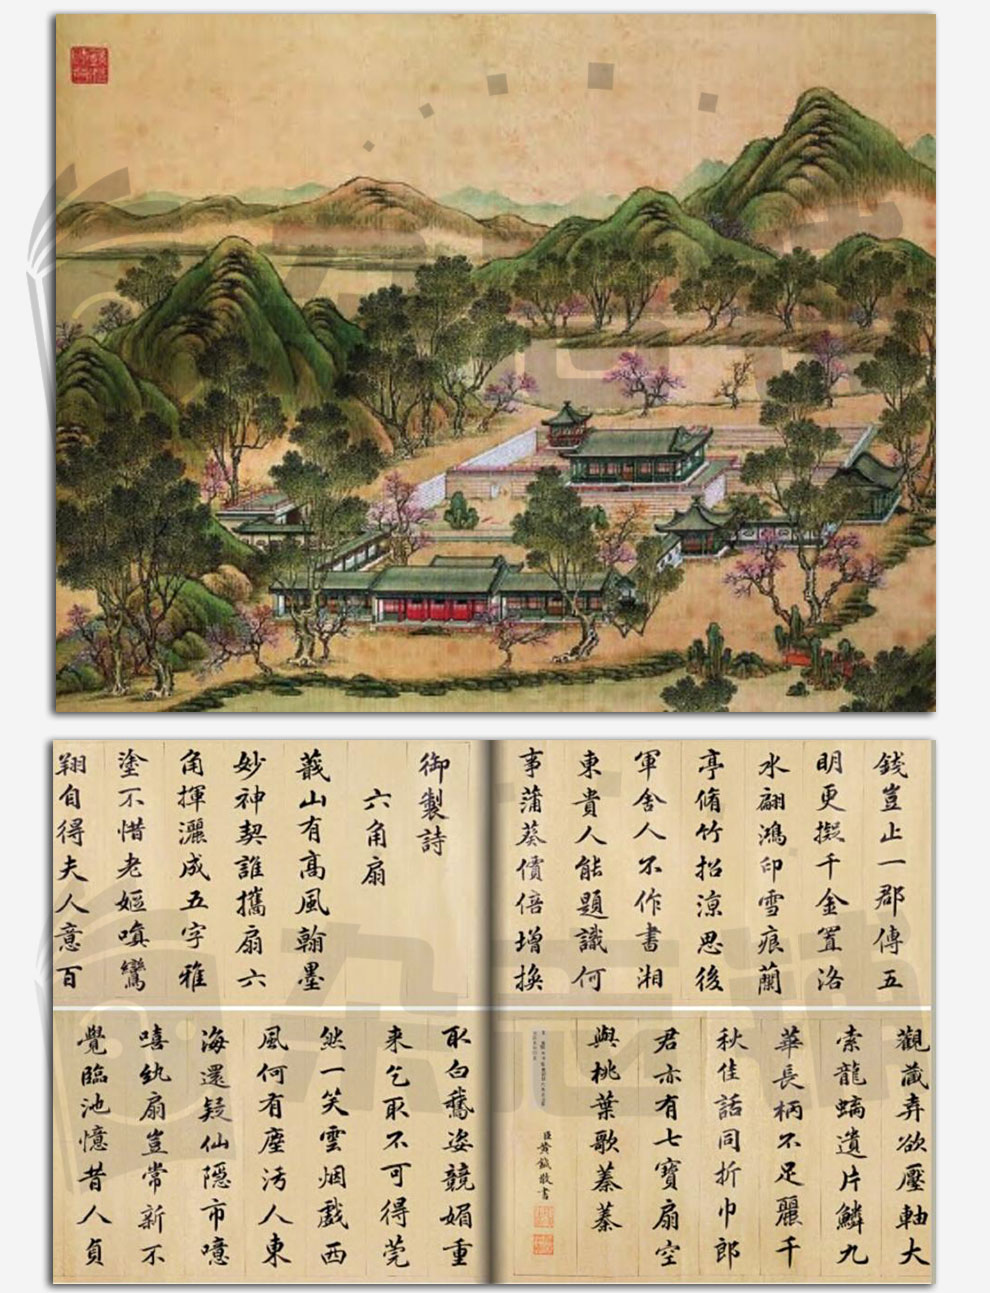 御製詩
六角扇
蕺山有高風翰墨
妙神契誰攜扇六
角揮灑成五字雅
塗不惜老嫗嗔鸞
翔自得夫人意百
錢豈止一郡傳五
明更擬千金置洛
水翩鴻印雪痕蘭
亭脩竹招涼思後
軍舍人不作書湘
東貴人能題識何
事蒲葵價倍增換
取白鵞姿競媚重
来乞取不可得莞
然一笑雲烟戲西
風何有塵汚人東
海還疑仙隱市噫
嘻紈扇豈常新不
覺臨池憶昔人貞
觀藏弆欲壓軸大
索龍螭遺片鱗九
華長柄不足麗千
秋佳話同折巾郎
君亦有七寶扇空
與桃葉歌蓁蓁
臣黄鉞敬書